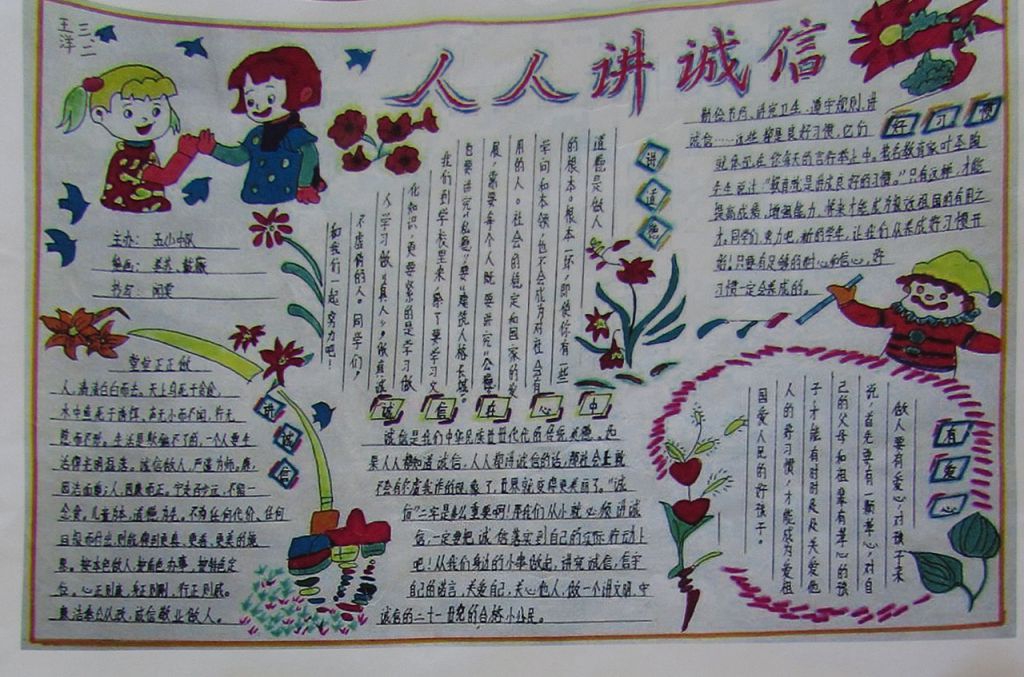 三二
王洋
人人讲诚信
主办：玉山中队
书写：闻雯
讲道德
道德是做人
的根本。根本一坏，即使你有一些
学问和本领，也不会成为对社会有
用的人。社会的稳定和国家的发
展，需要每个人既要讲究“公德”
也要讲究“私德”要“建筑人格长城。
我们到学校里来，除了要学习文
化知识，更要紧的是学习做
人学习做“真人”，做真诚
不虚假的人。同学们，
和我们一起努力吧！
好习惯
勤俭节约、讲究卫生、遵守规则、讲
诚信……这些都是良好习惯，它们
就体现在你每天的言行举止中。著名教育家叶圣陶
先生说过：“教育就是讲成良好的习惯。”只有这样，才能
提高成绩，增强能力，将来才能成为报效祖国的有用之
才。同学们，努力吧，新的学年，让我们从养成好习惯开
始！只要有足够的耐心和信心，好
习惯一定会养成的。
讲诚信
堂堂正正做
人，清清白白而去。天上鸟死于贪食，
水中鱼死于诱饵，声无小而不闻，行无
隐而不形。生活是欺骗不了的，一个人要生
活得光明磊落。诚信做人，严谨为师。廉，
因洁而廉；人，因廉而正。宁走百步远，不留一
念贪。儿童为本，道德为先。不为任何代价、任何
目标而付出，则能得到更真、更善、更美的
果。按本色做人，按角色办事，按特色定
位。心正则廉，身正则刚，行正则威。
廉洁奉公从政，诚信敬业做人。
诚信在心中
诚信是我们中华民族世世代代的传统美德。如
果人人都知道诚信，人人都讲诚信的话，那社会上就
不会有弄虚我作的现象了，世界就变得更美丽了。“诚
信”二字是多么重要啊！帮我们从小就必须讲诚
信，一定要把诚信落实到自己的实际行动上
吧！从我们身边的小事做起，讲究诚信，信守
自己的诺言，关爱自己，关心他人，做一个讲文明、守
诚信的二十一世纪的合格小公民。
有爱心
做人要有爱心，对孩子来
说，首先要有一颗孝心，对自
己的父母和祖辈有孝心的孩
子，才能有时时处处关爱他
人的好习惯，才能成为爱祖
国爱人民的好孩子。